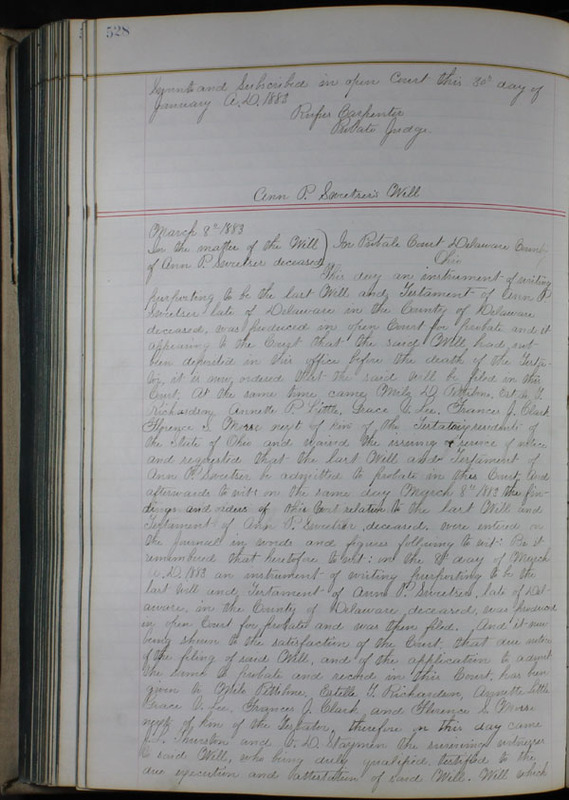 528
Sworn and Subscribed in open Court this 30th day of
January A.D. 1883
Rufus Carpenter
Probate Judge
Ann P. Sweetser's Will
March 8th 1883
In the matter of the Will ) In Probate Court Delaware County
of Ann P. Sweetser deceased ) Ohio
This day an instrument of writing
purporting to be the last Will and Testament of Ann P
Sweetser late of Delaware in the County of Delaware
deceased, was produced in open Court for probate and it
appearing to the Court that the said Will, had not
been deposited in this office before the death of the Testa-
tor, it is now ordered that the said will be filed in this
Court. At the same time came
Richardson, Annette P. Little, Grace V. Lee, Frances J. Clark
Florence S. Morse next of kin of the Testator residents of
the State of Ohio and waived the issuing & service of notice
and requested that the last Will and Testament of
Ann P. Sweetser be admitted to probate in this Court, And
afterwards to wit: on the same day March 8th 1883 the fin-
dings and orders of this Court relative to the last Will and
Testament of Ann P. Sweetser deceased, were entered on
the Journal in words and figures following to wit: Be it
remembered that heretofore to wit: on the 8th day of March
A.D. 1883 an instrument of writing purporting to be the
last Will and Testament of Ann P. Sweetser, late of Del-
aware, in the County of Delaware, deceased, was produced
in open Court for probate and was then filed. And it now
being shown to the satisfaction of the Court, that due notice
of the filing of said Will, and of the application to admit
the same to probate and record in this Court, has been
given to Estelle T. Richardson, Annette Little
Grace V. Lee, Frances J. Clark, and Florence S. Morse
next of kin of the Testator, therefore on this day came
Thurston and V. D. Stayman the surviving witnesses
to said Will, who being duly qualified, testified to the
due execution and attestation of said Will. Will which